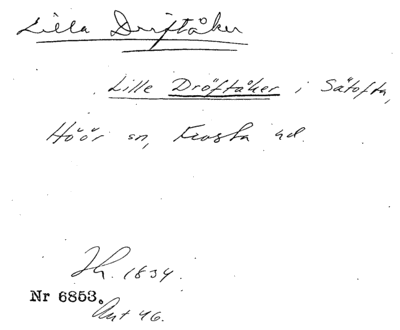 Lilla Driftåker
Lille Dröftåker i Sätofta,
Höör sn, Frosta hd.
Jh. 1834.
Nr 6853.
Akt 46.